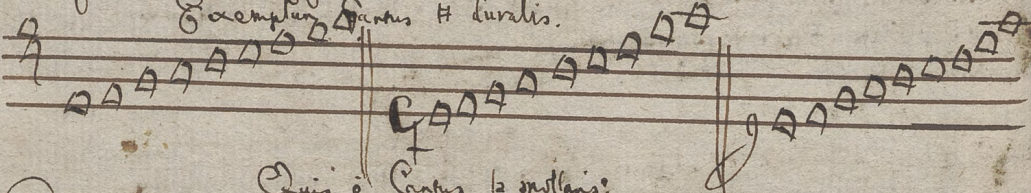 Exemplum Cantus ♮ duralis.
Quis è Cantus b mollaris?